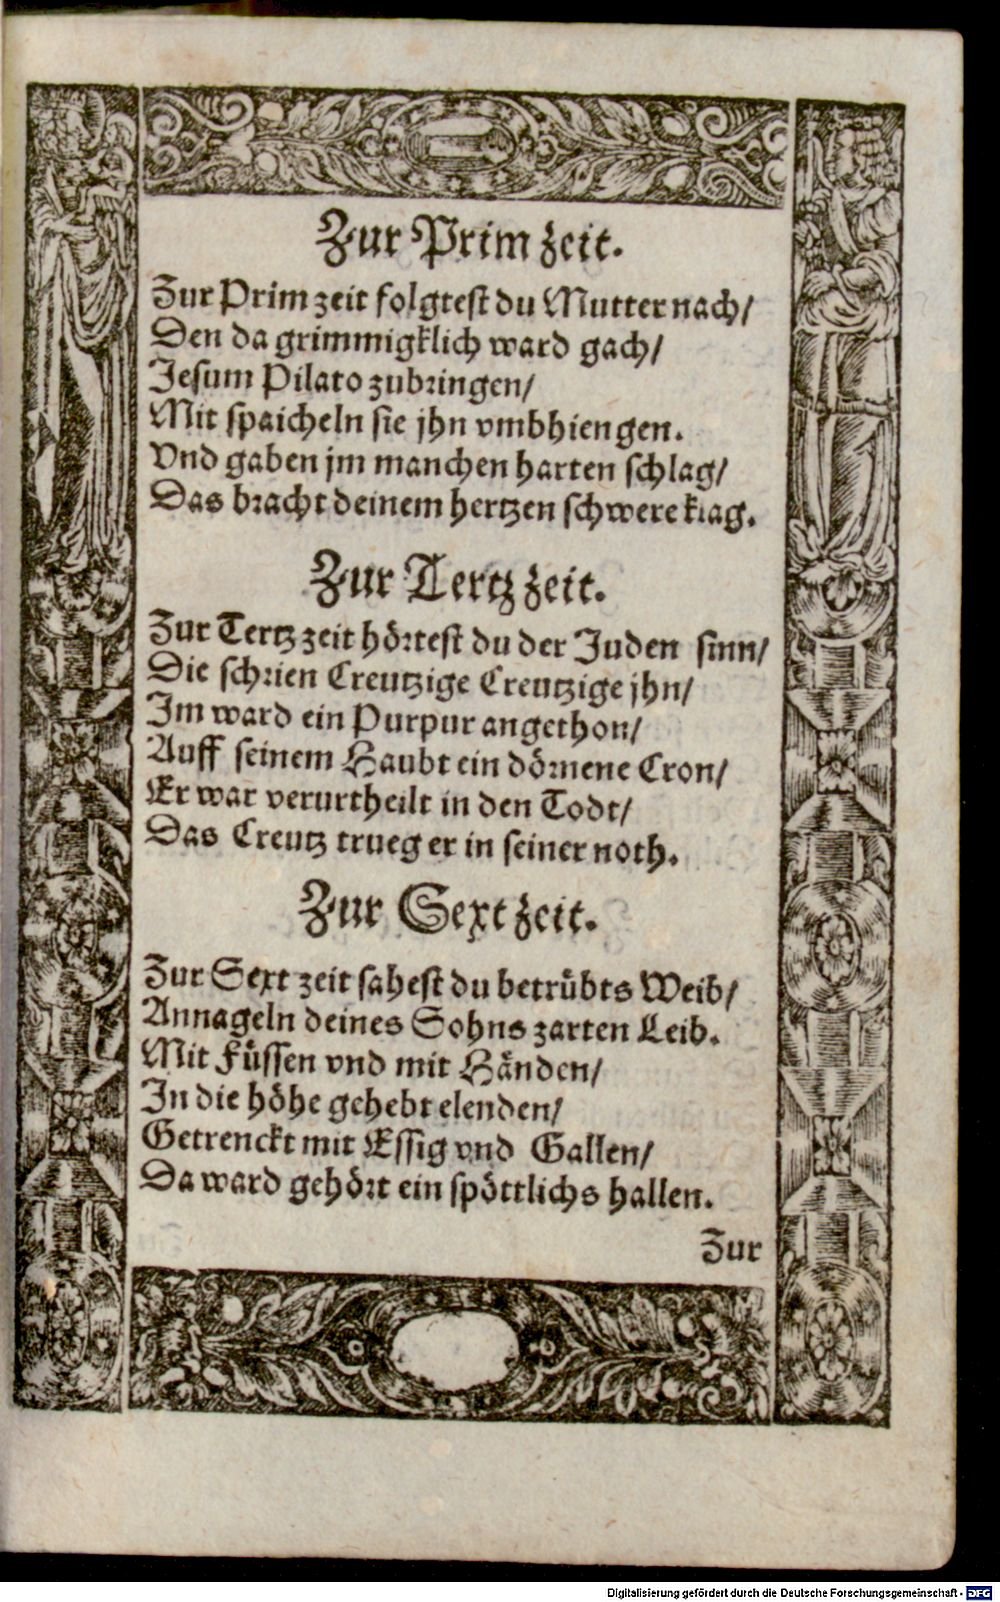 Zur Prim zeit.
Zur Prim zeit folgtest du Mutter nach/
Den da grimmigklich ward gach/
Jesum Pilato zubringen/
Mit spaicheln sie jhn vmbhiengen.
Vnd gaben jm manchen harten schlag/
Das bracht deinem hertzen schwere klag.
Zur Tertz zeit.
Zur Tertz zeit hörtest du der Juden sinn/
Die schrien Creutzige Creutzige jhn/
Im ward ein Purpur angethon/
Auff seinem Haubt ein dörnene Cron/
Er war verurtheilt in den Todt/
Das Creutz trueg er in seiner noth.
Zur Sext zeit.
Zur Sext zeit sahest du betrübts Weib/
Annageln deines Sohns zarten Leib.
Mit Füssen vnd mit Händen/
In die höhe gehebt elenden/
Getrenckt mit Essig vnd Gallen/
Da ward gehört ein spöttlichs hallen.
Zur
Digitalisierung gefördert durch die Deutsche Forschungsgemeinschaft - DFG